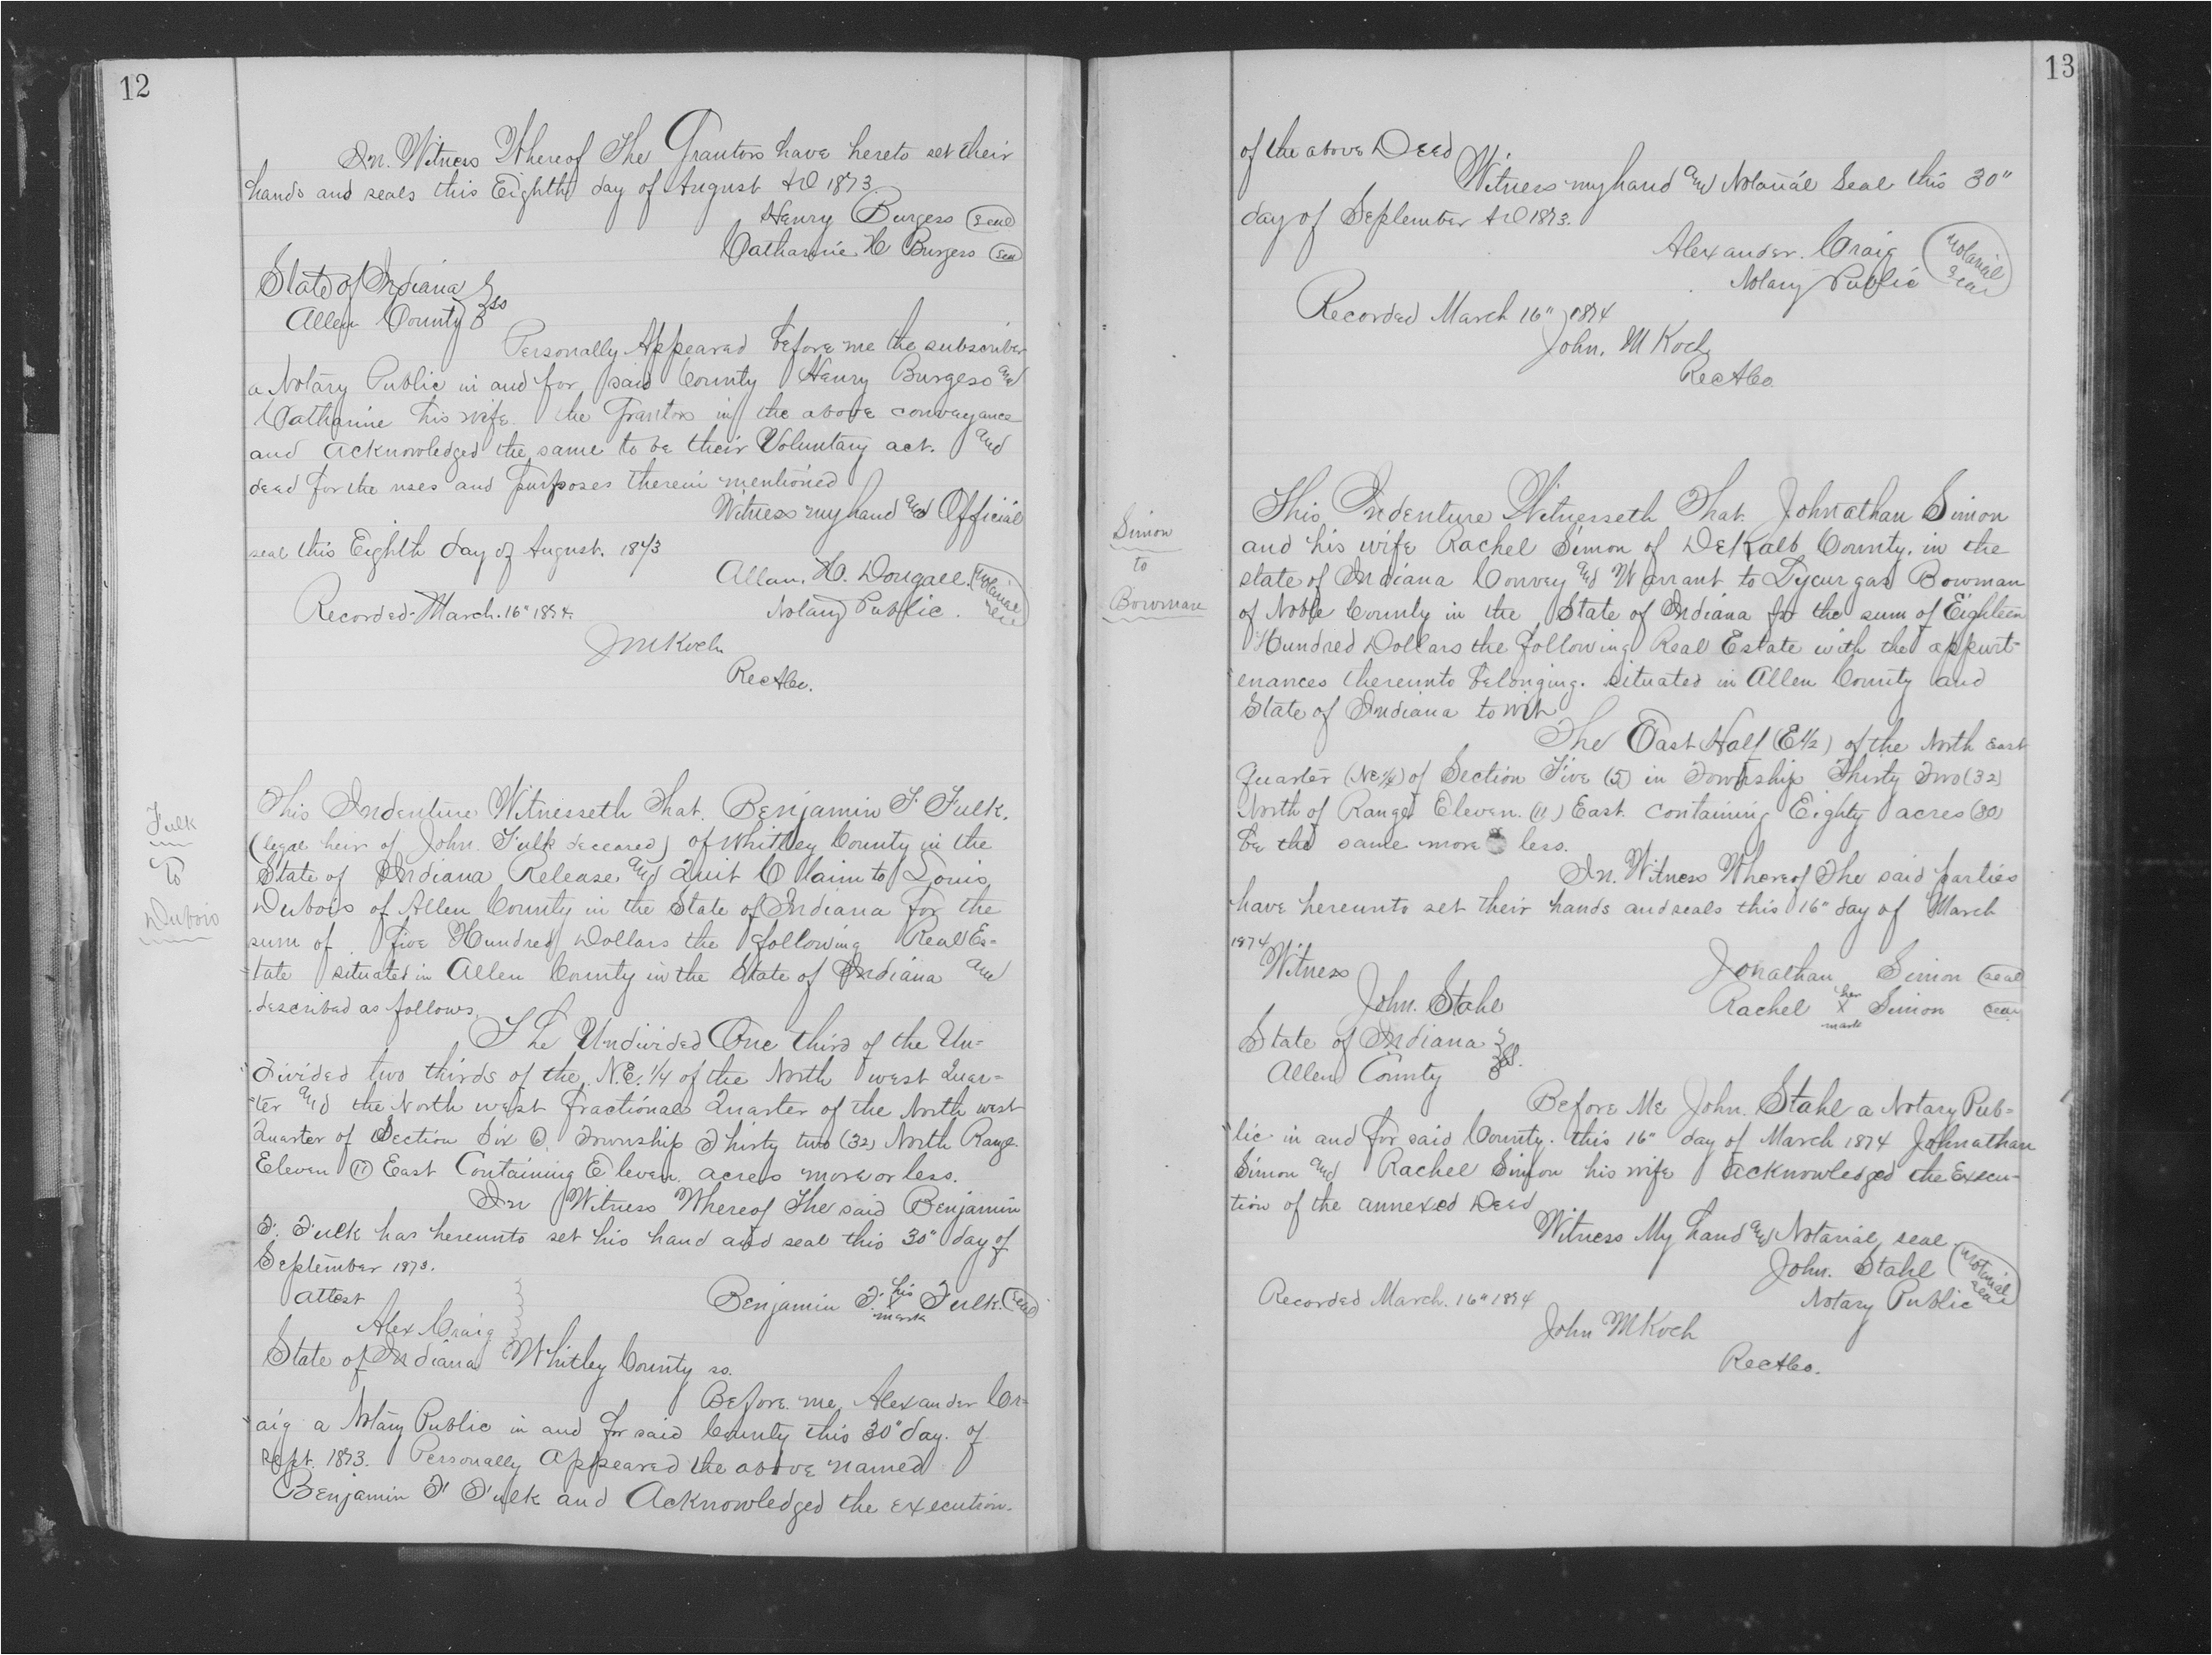 12
In. Witness Whereof The Grantors have hereto set their
hands and seals this Eighth day of August AD 1873.
Henry Burgess (Seal)
Catharine H Burgess (Seal)
State of Indiana } ss
Allen County }
Personally Appeared before me the subscriber
a Notary Public in and for said County Henry Burgess and
Catharine his wife. the Grantors in the above conveyance
and acknowledged the same to be their Voluntary act. and
deed for the uses and purposes therein mentioned
Witness my hand and Official
seal this Eighth day of August. 1873
Allan. H. Dougall. (Notarial Seal)
Notary Public.
Recorded March. 16" 1874.
J M Koch
Rec A Co.
Fulk
To
Dubois
This Indenture Witnesseth That. Benjamin F. Fulk.
(legal heir of John. Fulk deceased) of Whitley County in the
State of Indiana Release and Quit Claim to Louis
Dubois of Allen County in the State of Indiana for the
sum of Five Hundred Dollars the following Real Es=
-tate situated in Allen County in the State of Indiana and
described as follows.
The Undivided One third of the Un-
divided two thirds of the N.E. 1/4 of the North west Quar=
-ter and the North west fractional Quarter of the North west
Quarter of Section Six (6) Township Thirty two (32) North Range
Eleven (11) East Containing Eleven. acres more or less.
In Witness Whereof The said Benjamin
F. Fulk has hereunto set his hand and seal this 30" day of
September 1873.
Attest
Benjamin F. his x mark Fulk. (Seal)
Alex Craig
State of Indiana Whitley County ss.
Before. me, Alexander Cr=
aig a Notary Public in and for said County this 30" day. of
Sept. 1873. Personally Appeared the above named
Benjamin F Fulk and Acknowledged the execution.
13
of the above Deed
Witness my hand and Notarial Seal this 30"
day of September AD 1873.
Alexander. Craig (Notarial Seal)
Notary Public
Recorded March 16" 1874
John. M Koch
Rec A Co
Simon
to
Bowman
This Indenture Witnesseth That. Johnathan Simon
and his wife Rachel Simon of DeKalb County. in the
state of Indiana Convey and Warrant to Lycurgas Bowman
of Noble County in the State of Indiana for the sum of Eighteen
Hundred Dollars the following Real Estate with the appurt-
enances thereunto belonging. situated in Allen County and
State of Indiana to wit
The East Half (E 1/2) of the North East
Quarter (NE 1/4) of Section Five (5) in Township Thirty Two (32)
North of Range Eleven. (11) East. containing Eighty acres (80)
be the same more less.
In. Witness Whereof The said parties
have hereunto set their hands and seals this 16" day of March
1874
Witness
Jonathan Simon (Seal)
John. Stahl
Rachel her x mark Simon (Seal)
State of Indiana } ss.
Allen County }
Before Me John. Stahl a Notary Pub=
lic in and for said County. this 16" day of March 1874 Johnathan
Simon and Rachel Simon his wife acknowledged the Execu-
tion of the annexed Deed
Witness My hand and Notarial seal
John. Stahl (Notarial Seal)
Notary Public
Recorded March. 16" 1874
John M Koch
Rec A Co.